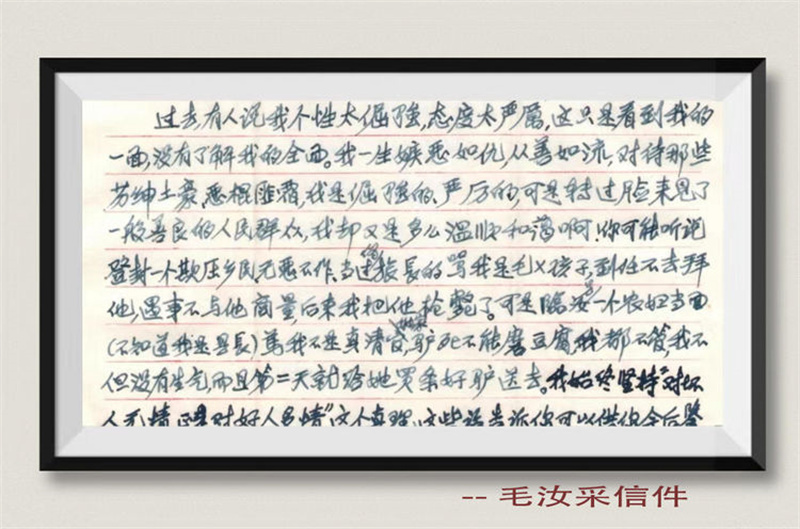 过去有人说我个性太倔强,态度太严厉,这只是看到我的
一面,没有了解我的全面。我一生嫉恶如仇,从善如流,对待那些
劣绅土豪,恶棍匪霸,我是倔强的、严厉的,可是转过脸来见了
一般善良的人民群众,我却又是多么温顺和蔼啊!你可能听说
登封一个欺压乡民,无恶不作,当过 长的骂我是毛 孩子,到任不去拜
他,遇事不与他商量,后来我把他枪毙了。可是临汝一个农妇当面
(不知道我是县长)骂我不是真清官,驴死不能磨豆腐,我都不管,我不
但没有生气,而且第二天就给她买条好驴送去。我始终坚持“对坏
人无情,正是对好人多情”这个真理,这些话告诉你可以供你今后鉴
-- 毛汝采信件